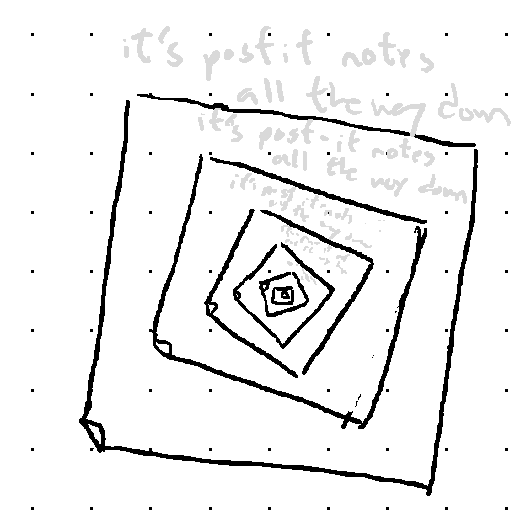 it's post it notes
all the way down
it's post-it notes
all the way down
it's post it notes
all the way down